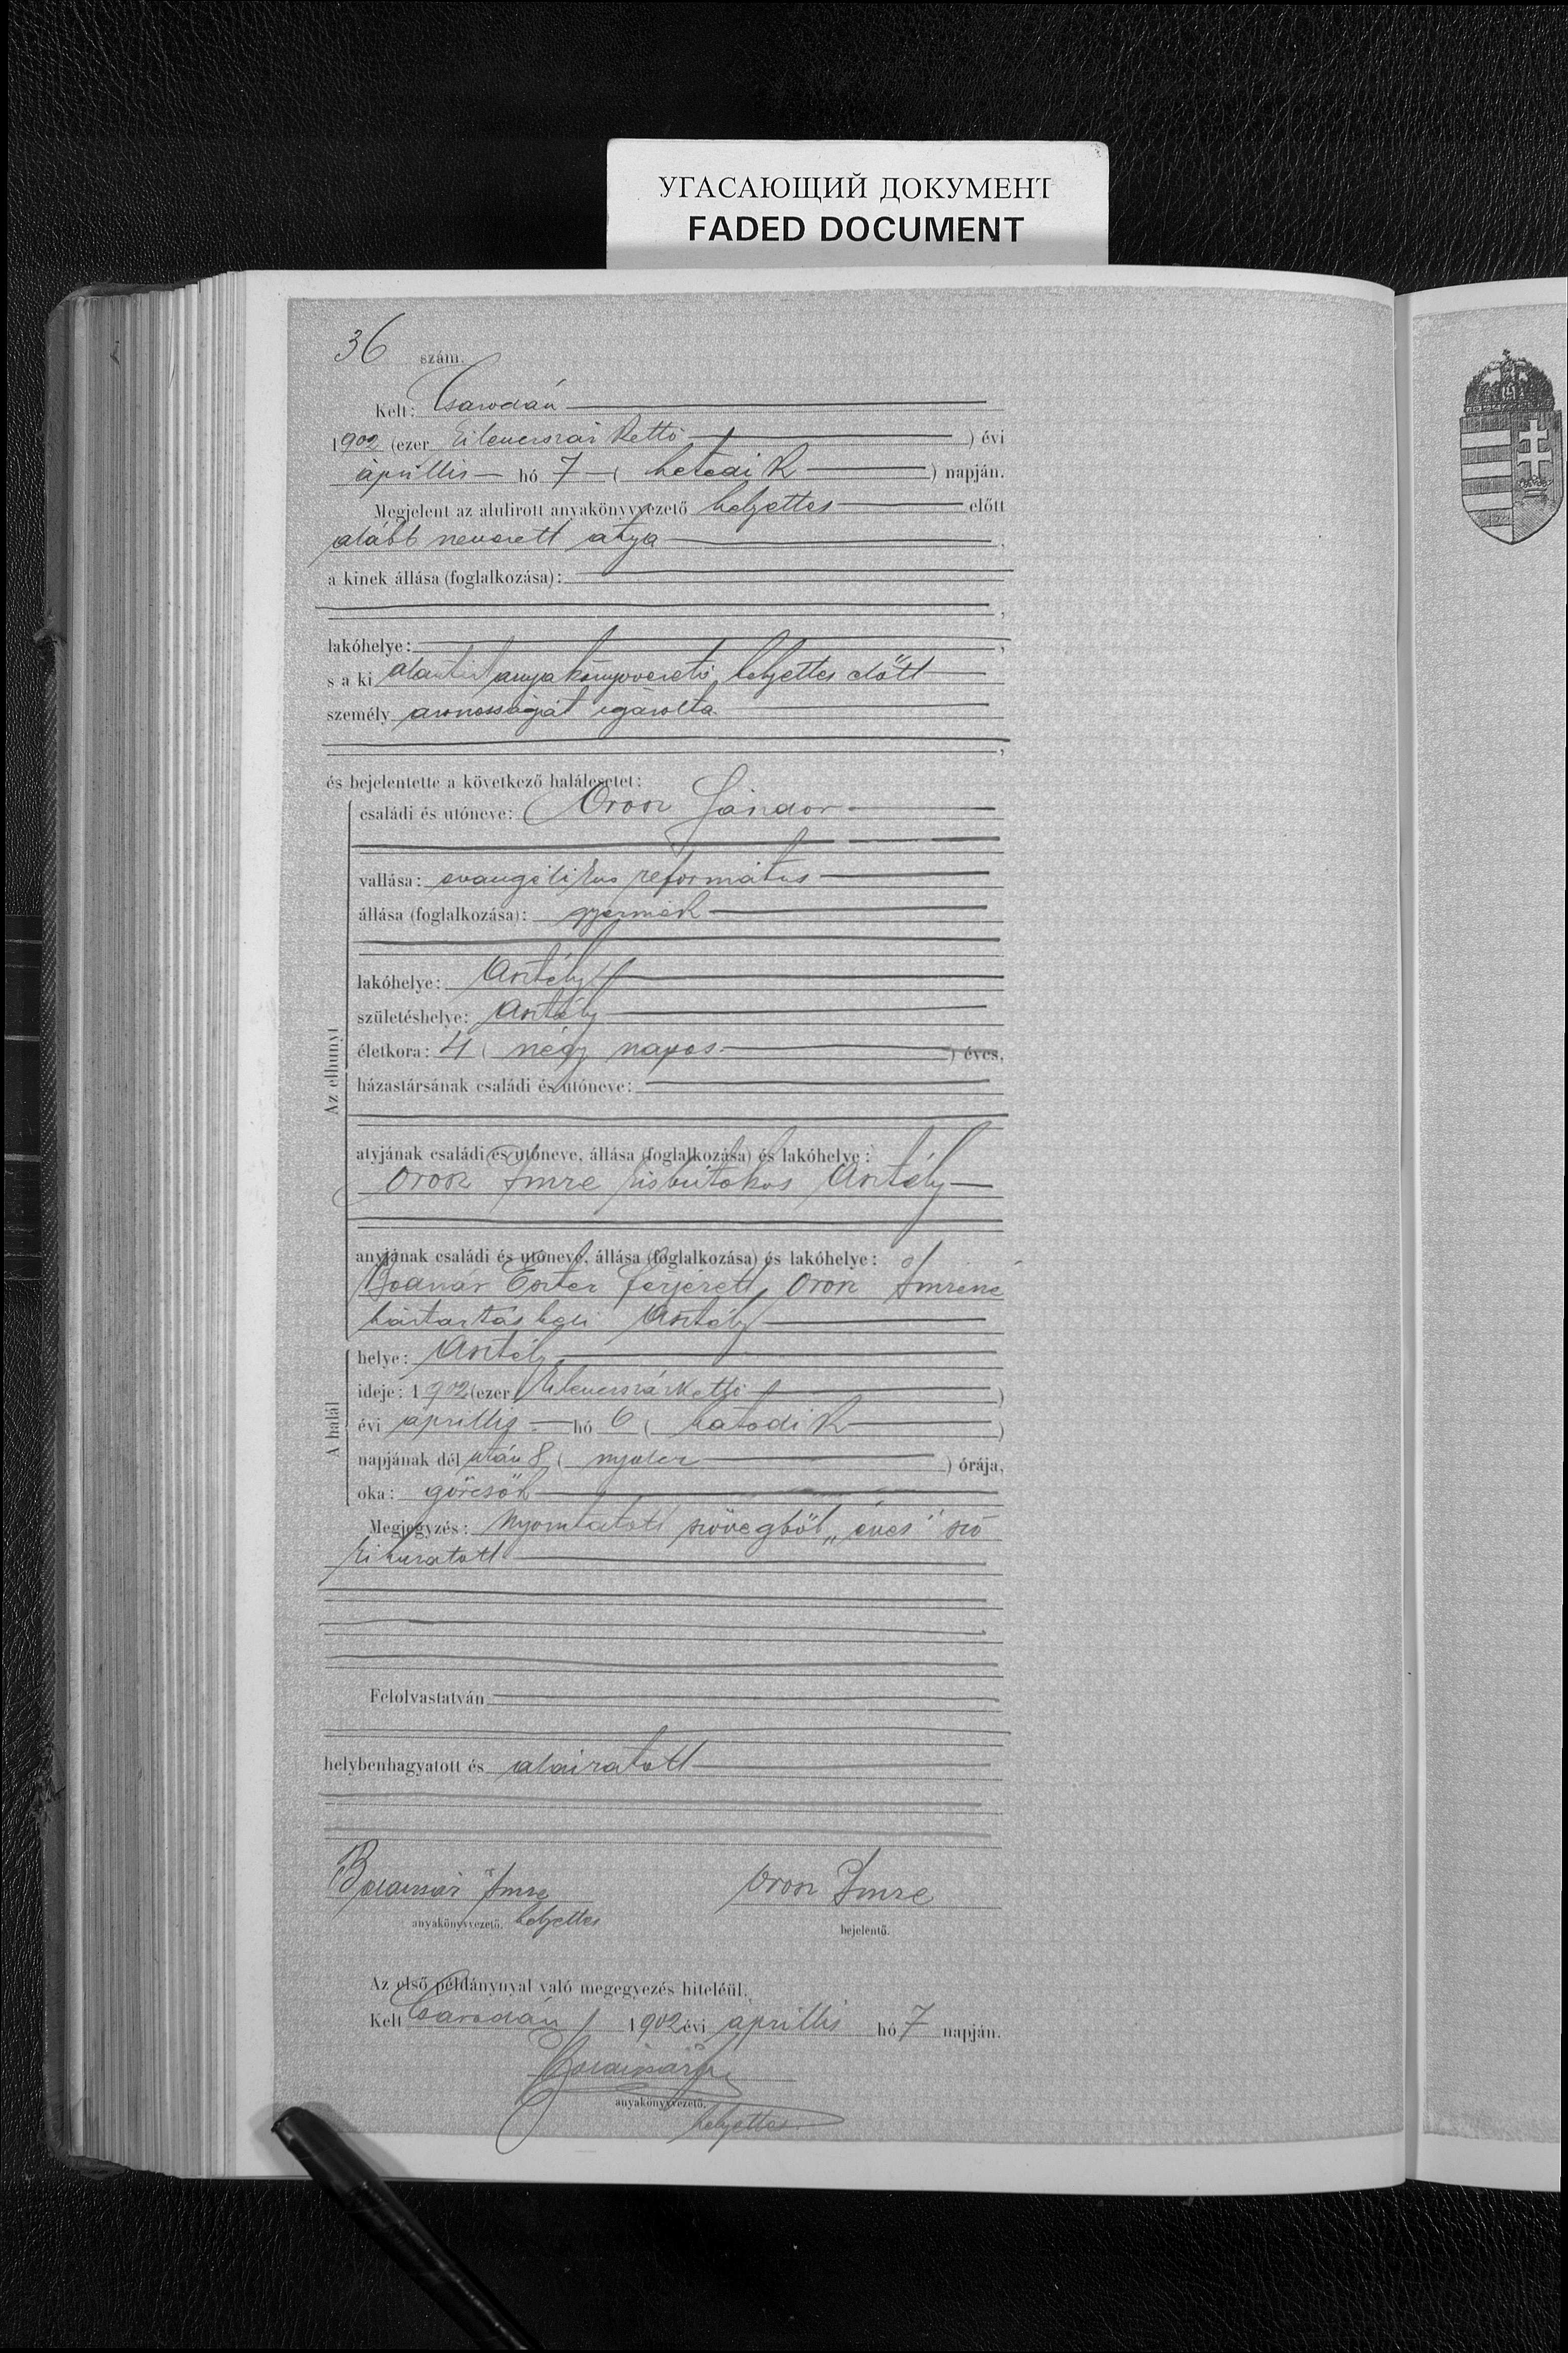 УГАСАЮЩИЙ ДОКУМЕНТ
FADED DOCUMENT
36 szám.
Kelt: Csarodán
1902 (ezer kilencszáz kettő) évi
áprillis hó 7 (hetedik) napján.
Megjelent az alulirott anyakönyvvezető helyettes előtt
alább nevezett atya
a kinek állása (foglalkozása):
lakóhelye:
s a ki alantirt anyakönyvvezető helyettes előtt
személy azonosságát igazolta
és bejelentette a következő halálesetet:
családi és utóneve: Orosz Sándor
vallása: evangélikus református
állása (foglalkozása): gyermek
lakóhelye: Asztély
születéshelye: Asztély
életkora: 4 (négy napos) éves,
házastársának családi és utóneve:
Az elhunyt
atyjának családi és utóneve, állása (foglalkozása) és lakóhelye:
Orosz Imre kisbirtokos Asztély
anyjának családi és utóneve, állása (foglalkozása) és lakóhelye:
Bodnár Eszter férjezett Orosz Imréné
háztartásbeli Asztély
A halál
helye: Asztély
ideje: 1902 (ezer kilencszázkettő)
évi áprillis hó 6 (hatodik)
napjának dél után 8 (nyolcz) órája,
oka: görcsök
Megjegyzés: Nyomtatott szövegből „éves" szó
kihuzatott
Felolvastatván
helybenhagyatott és aláiratott
Imre
anyakönyvvezető. helyettes
Orosz Imre
bejelentő.
Az első példánynyal való megegyezés hiteléül.
Kelt Csarodán 1902 évi áprillis hó 7 napján.
anyakönyvvezető.
helyettes